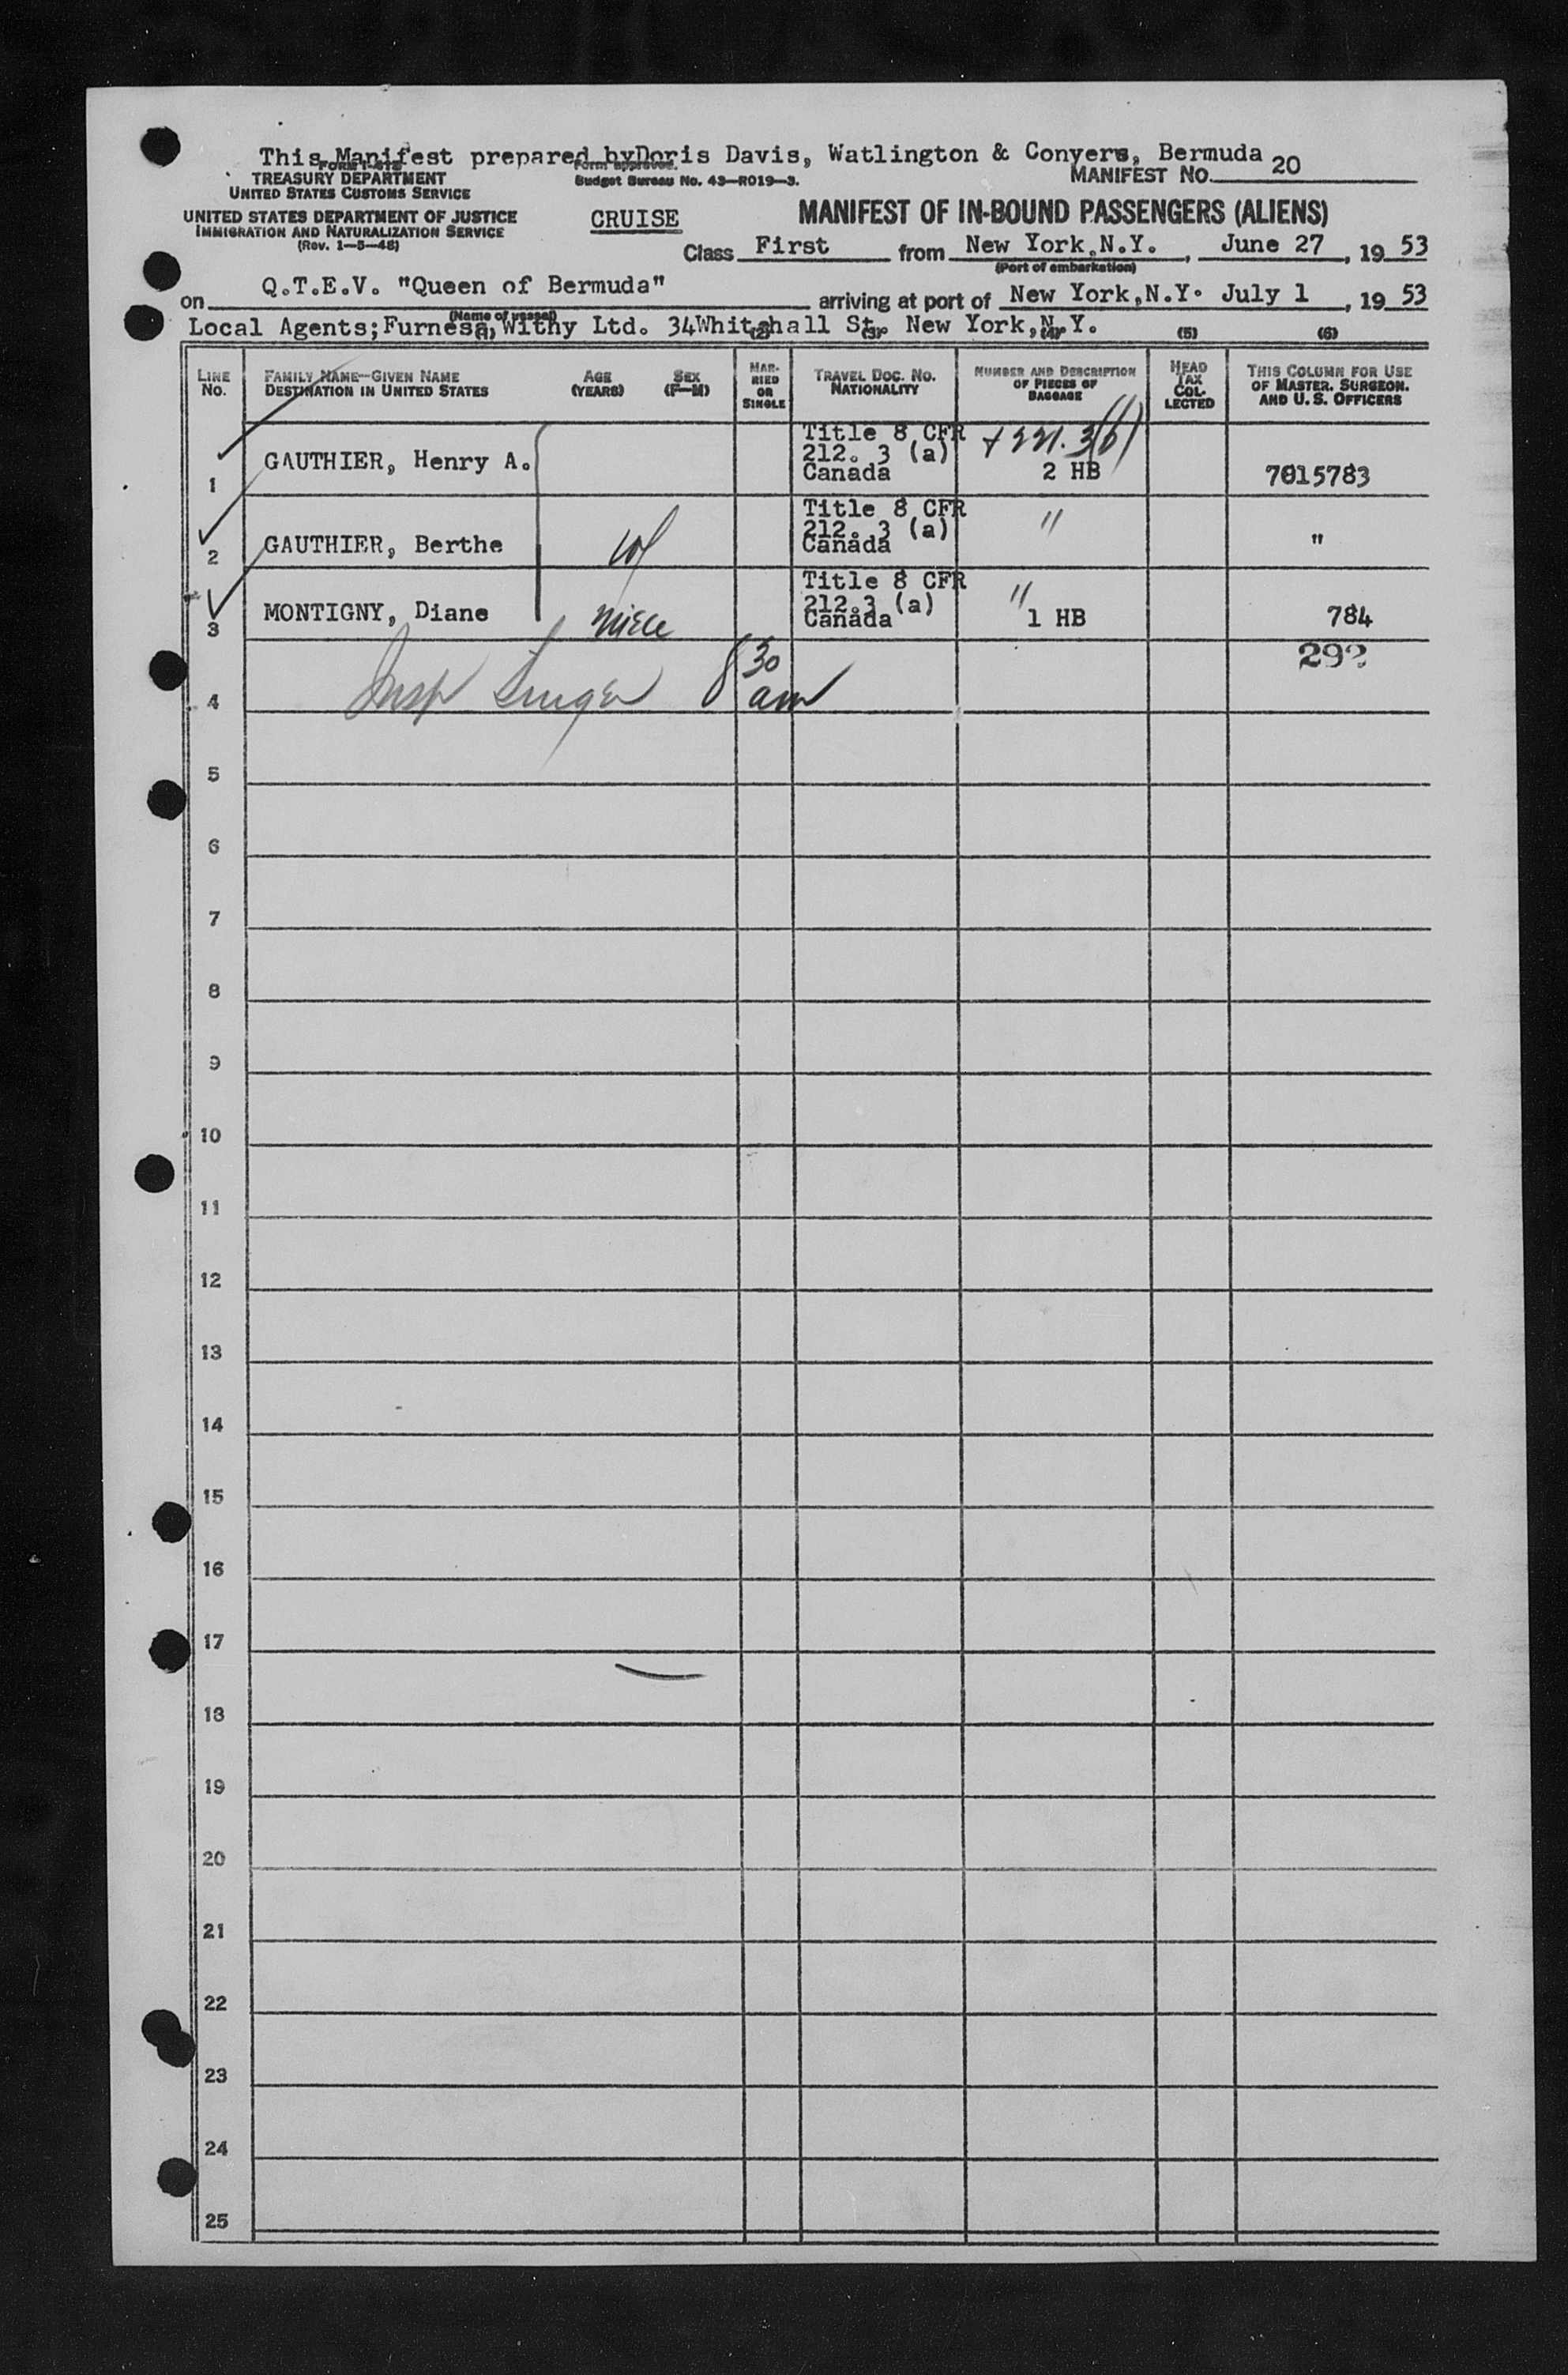 This Manifest prepared byDoris Davis, Watlington & Conyers, Bermuda
TREASURY DEPARTMENT
UNITED STATES CUSTOMS SERVICE
Form approved.
Budget Bureau No. 43—R019—3.
MANIFEST NO. 20
UNITED STATES DEPARTMENT OF JUSTICE
IMMIGRATION AND NATURALIZATION SERVICE
(Rev. 1—5—48)
CRUISE
MANIFEST OF IN-BOUND PASSENGERS (ALIENS)
Class First from New York,N.Y., June 27, 19 53
(Port of embarkation)
on Q.T.E.V. "Queen of Bermuda" arriving at port of New York,N.Y. July 1, 19 53
(Name of vessel)
Local Agents;Furness, Withy Ltd. 34Whitehall St. New York,N.Y.
(1) (2) (3) (4) (5) (6)
LINE NO.
FAMILY NAME—GIVEN NAME
DESTINATION IN UNITED STATES
AGE (YEARS)
SEX (F—M)
MARRIED OR SINGLE
TRAVEL DOC. NO.
NATIONALITY
NUMBER AND DESCRIPTION OF PIECES OF BAGGAGE
HEAD TAX COLLECTED
THIS COLUMN FOR USE OF MASTER, SURGEON, AND U. S. OFFICERS
1 GAUTHIER, Henry A. Title 8 CFR 212. 3 (a) Canada + 221. 3(b) 2 HB 7015783
2 GAUTHIER, Berthe wf Title 8 CFR 212. 3 (a) Canada " "
3 MONTIGNY, Diane niece Title 8 CFR 212.3 (a) Canada " 1 HB 784
4 Insp 8 30 am
5
6
7
8
9
10
11
12
13
14
15
16
17
18
19
20
21
22
23
24
25